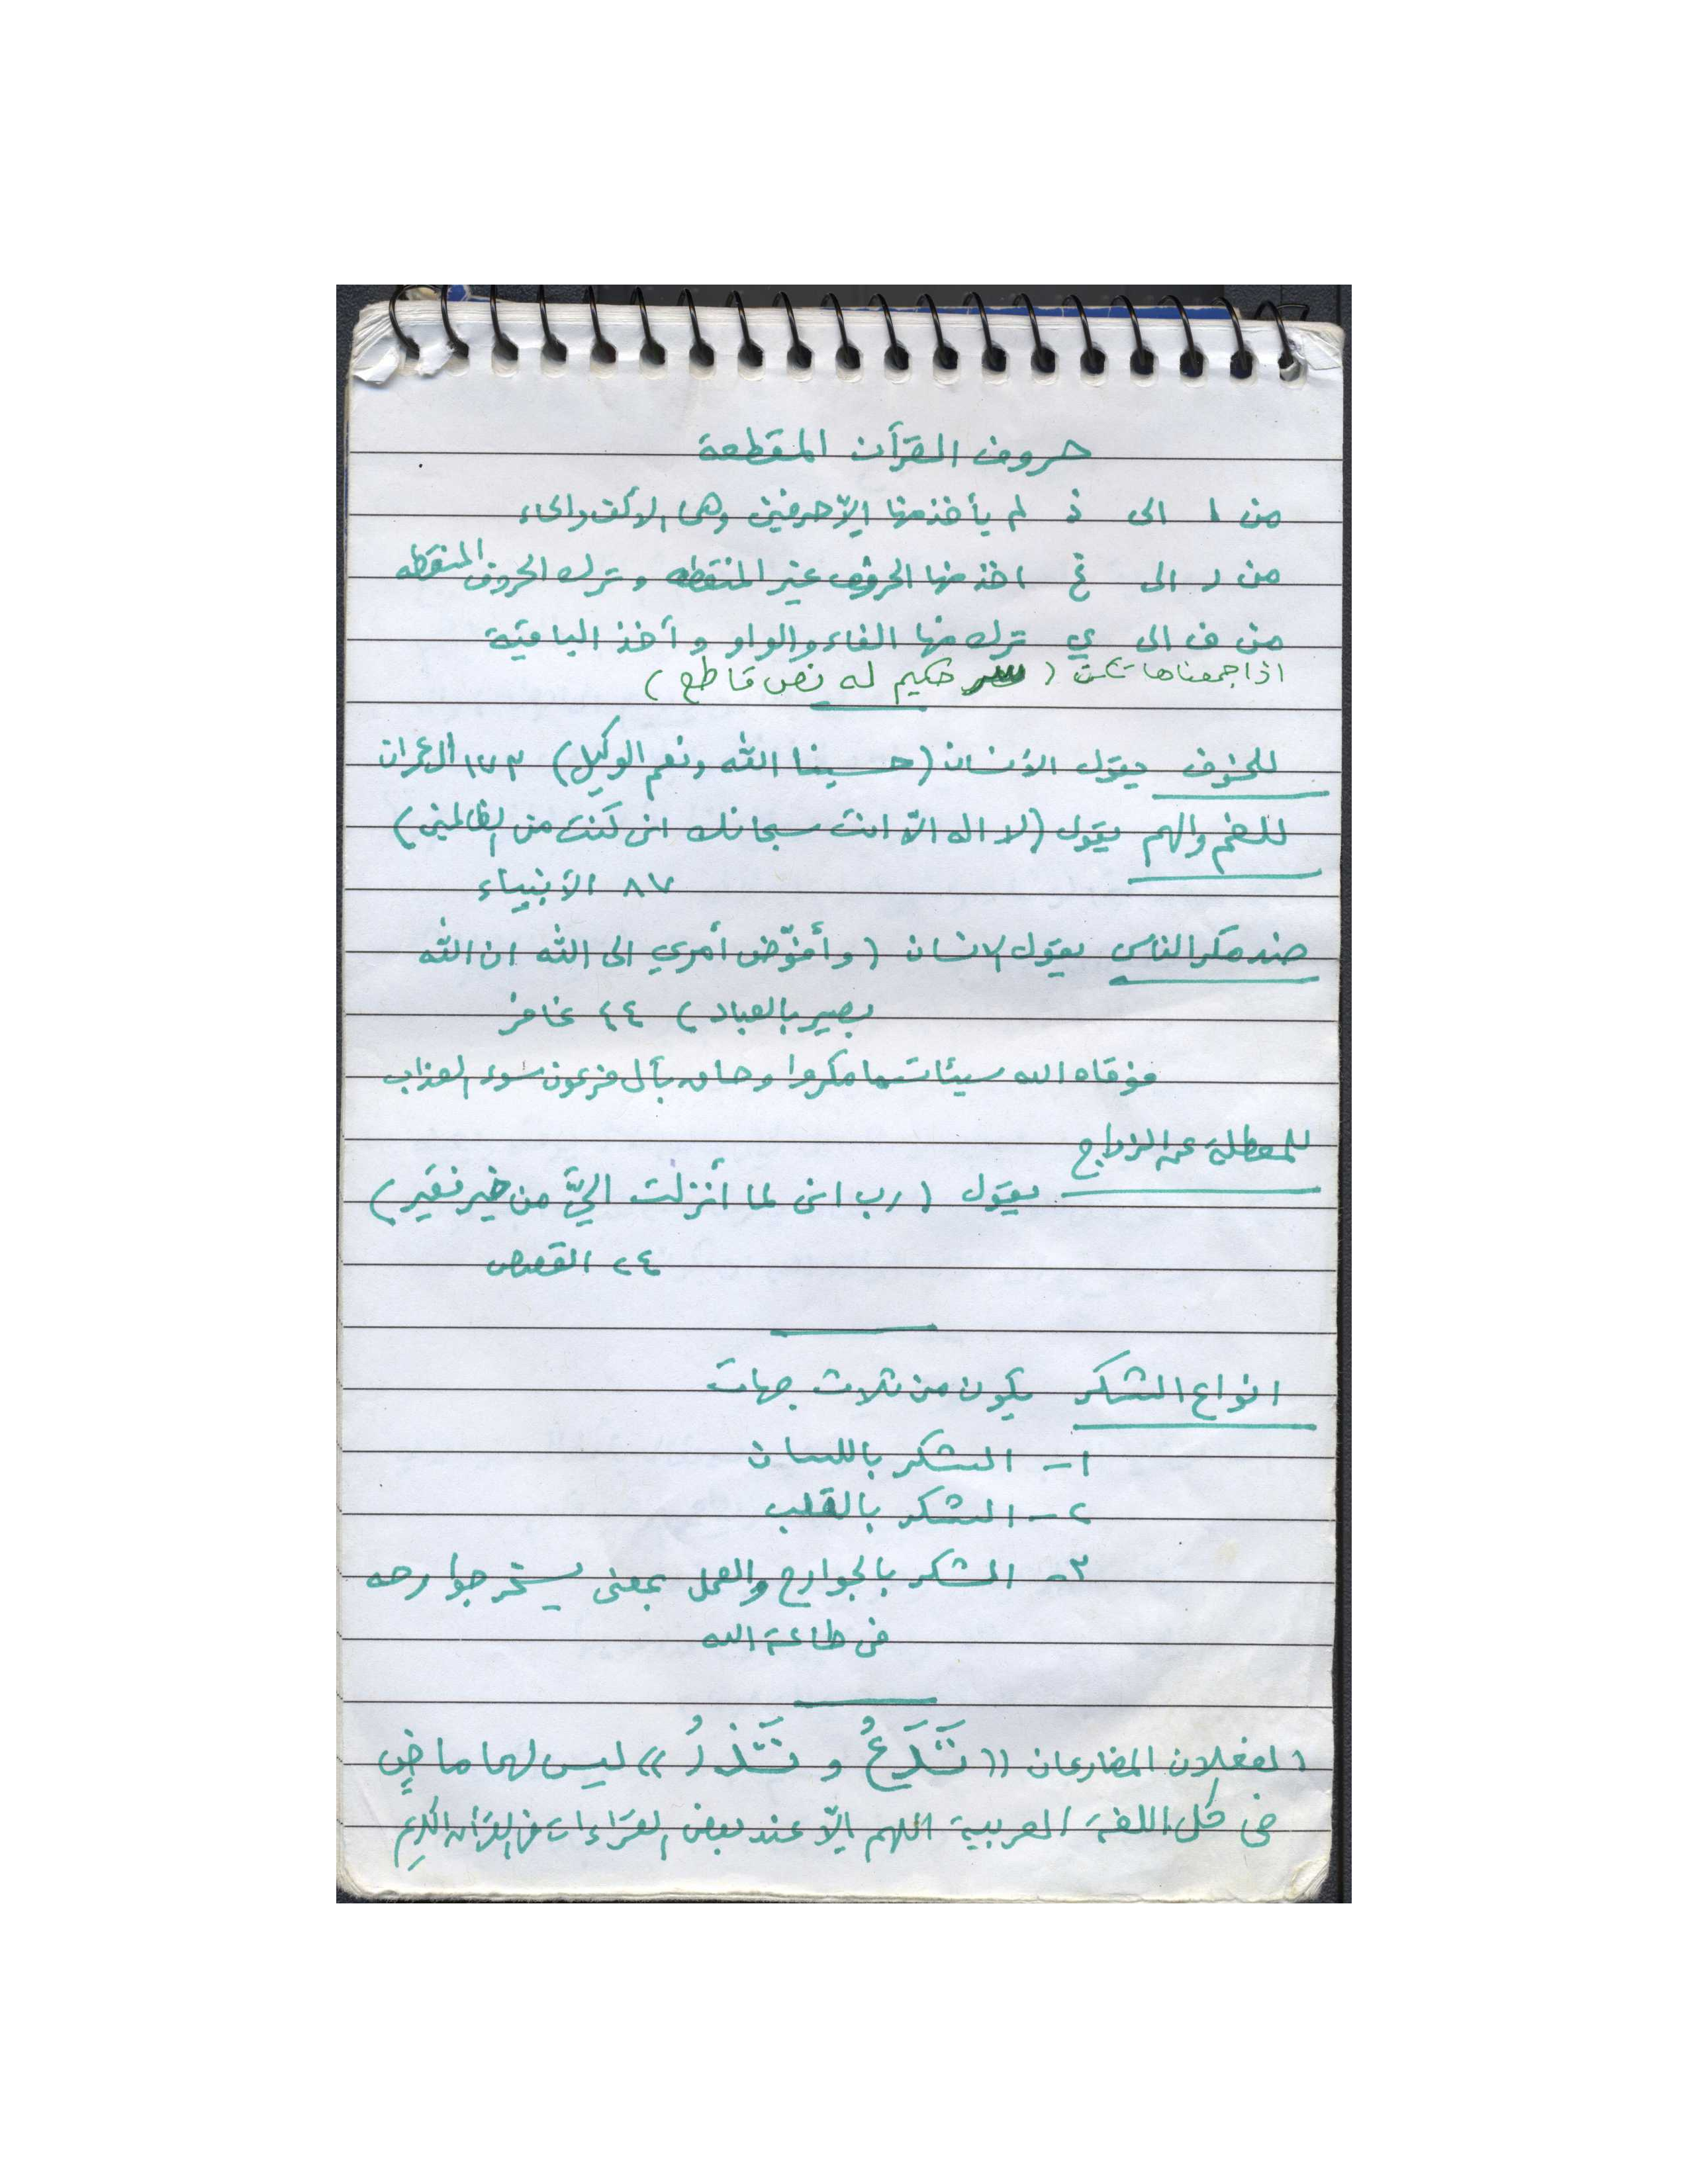 حروف القرآن المقطعة
من ا الى ذ لم يأخذ منها إلاّ حرفين وهى الألف والحاء
من ر الى غ اخذ منها الحروف غير المنقطه وترك الحروف المنقطه
من ف الى ي ترك منها الفاء والواو وأخذ الباقية
اذا جمعناها تكن ( سر حكيم له نص قاطع )
للخوف يقول الأنسان (حسبنا الله ونعم الوكيل) ١٧٣ ال عمران
للغم والهم يقول (لا اله الاّ انت سبحانك انى كنت من الظالمين)
٨٧ الأنبياء
عند مكر الناس يقول الانسان (وأفوّض أمري الى الله ان الله
بصير بالعباد) ٤٤ غافر
فوقاه الله سيئات ما مكروا وحاق بآل فرعون سوء العذاب
للمعطلة عن الزواج
يقول (رب انى لما أنزلت اليّ من خير فقير)
٢٤ القصص
انواع الشكر يكون من ثلاث جهات
١- الشكر باللسان
٢- الشكر بالقلب
٣- الشكر بالجوارح والعمل بمعنى يسخر جوارحه
فى طاعة الله
الفعلان المضارعان ((تَدَعُ و تَذَرُ)) ليس لهما ماضٍ
فى كل اللغة العربية اللهم إلاّ عند بعض القراءات فى القرآن الكريم